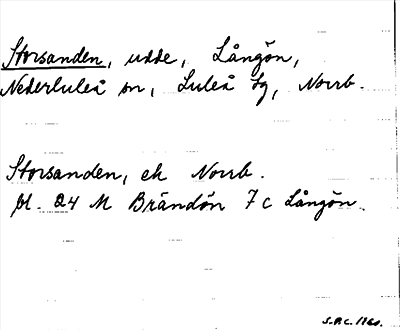 Storsanden, udde, Långön,
Nederluleå sn, Luleå tg, Norrb.
Storsanden, ek Norrb.
bl. 24 M Brändön 7 c Långön.
S.P.C. 1960.